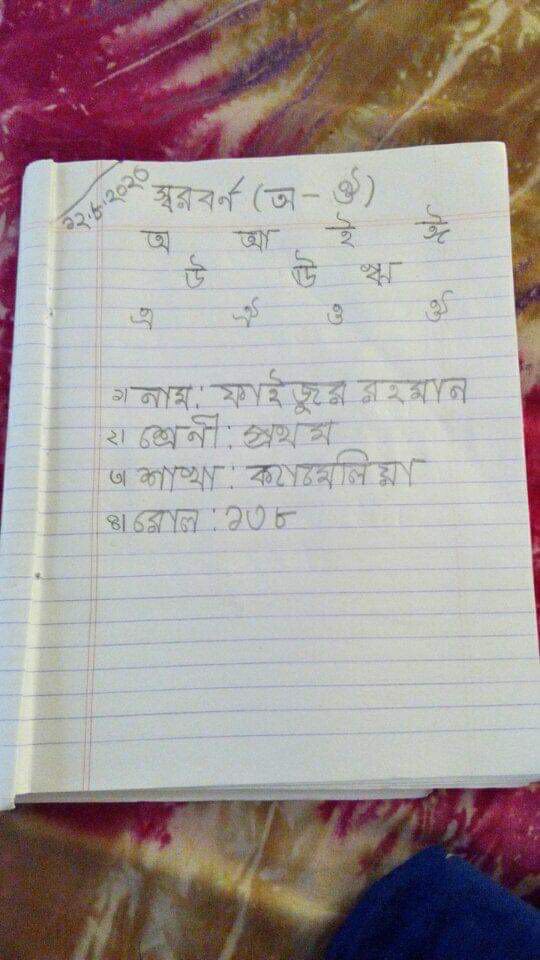 ২২.৮.2020
স্বরবর্ণ (অ - ঔ)
অ আ ই ঈ
উ ঊ ঋ
এ ঐ ও ঔ
১। নাম : ফাইজুর রহমান
২। শ্রেনী : প্রথম
৩। শাখা : ক্যামেলিয়া
৪। রোল : ১৩৮